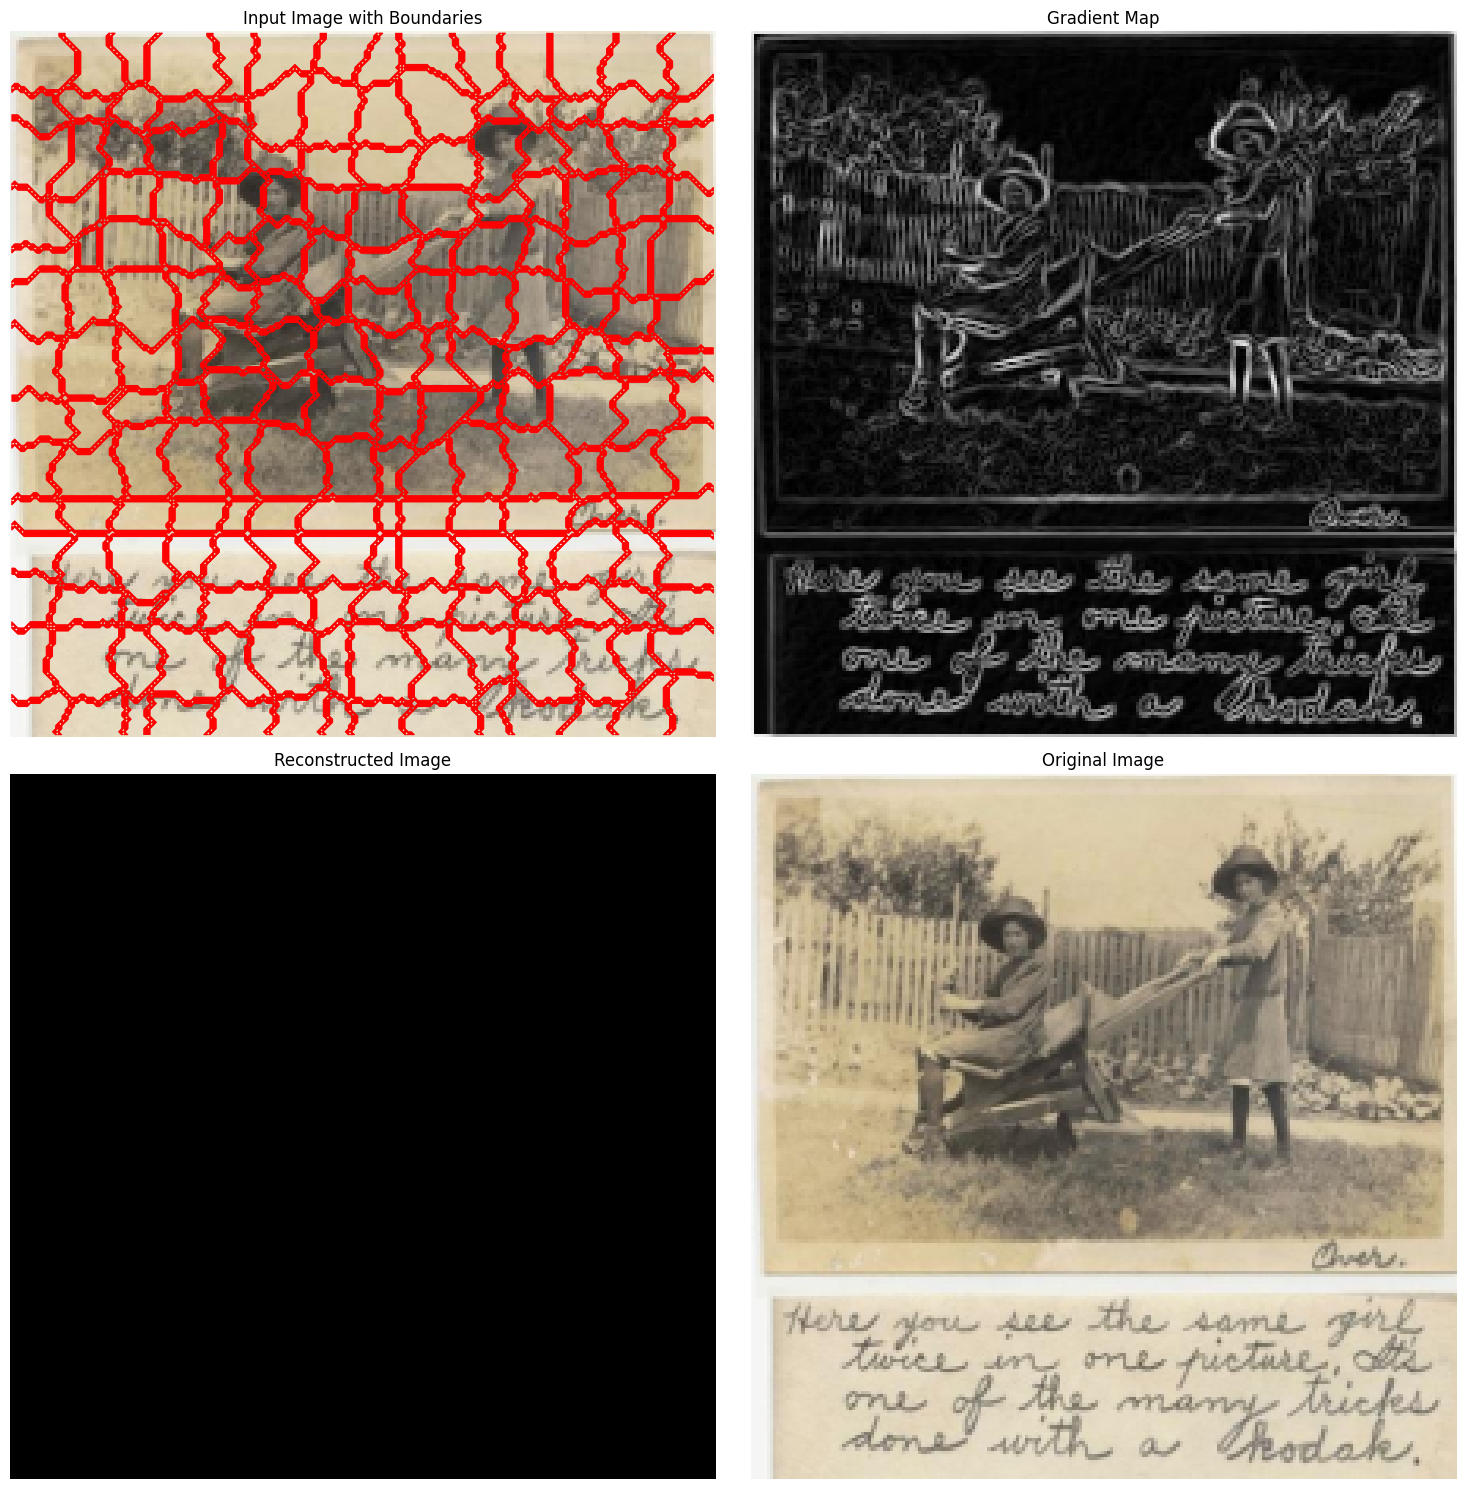 Input Image with Boundaries
Gradient Map
Over.
Here you see the same girl
twice in one picture. It's
one of the many tricks
done with a kodak.
Over.
Here you see the same girl
twice in one picture, It's
one of the many tricks
done with a kodak.
Reconstructed Image
Original Image
Over.
Here you see the same girl
twice in one picture. It's
one of the many tricks
done with a kodak.